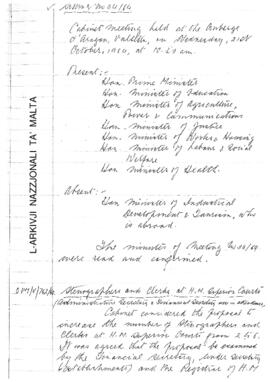 Cabinet Meeting held at the Auberge
d'Aragon, Valletta, on Wednesday, 21st
October, 1964, at 10.20 am.
Present:-
Hon. Prime Minister
Hon. Minister of Education
Hon. Minister of Agriculture,
Power & Communications
Hon. Minister of Justice
Hon. Minister of Works & Housing
Hon. Minister of Labour & Social
Welfare
Hon. Minister of Health.
Absent:-
Hon Minister of Industrial
Development & Tourism, who
is abroad.
The minutes of Meeting No 60/64
were read and confirmed.
Stenographers and Clerks at H.M. Superior Courts
Cabinet considered the proposal to
increase the number of Stenographers and
Clerks at H.M. Superior Courts from 2 to 6.
It was agreed that the proposal be examined
by the Financial Secretary, Under Secretary
(Establishments) and the Registrar of H.M
L-ARKIVJI NAZZJONALI TA' MALTA